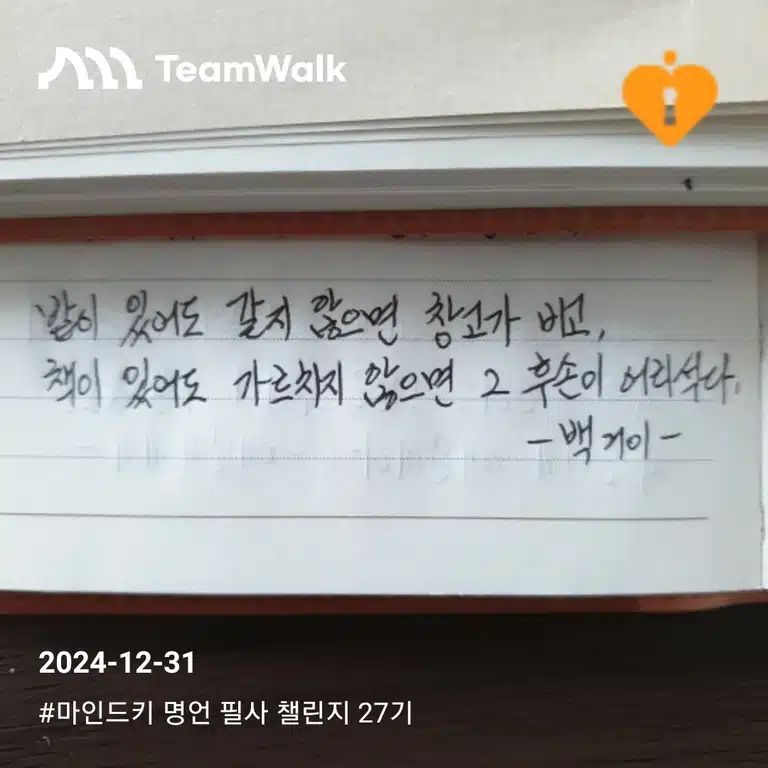 TeamWalk
밭이 있어도 갈지 않으면 창고가 비고,
책이 있어도 가르치지 않으면 그 후손이 어리석다.
-백거이-
2024-12-31
#마인드키 명언 필사 챌린지 27기